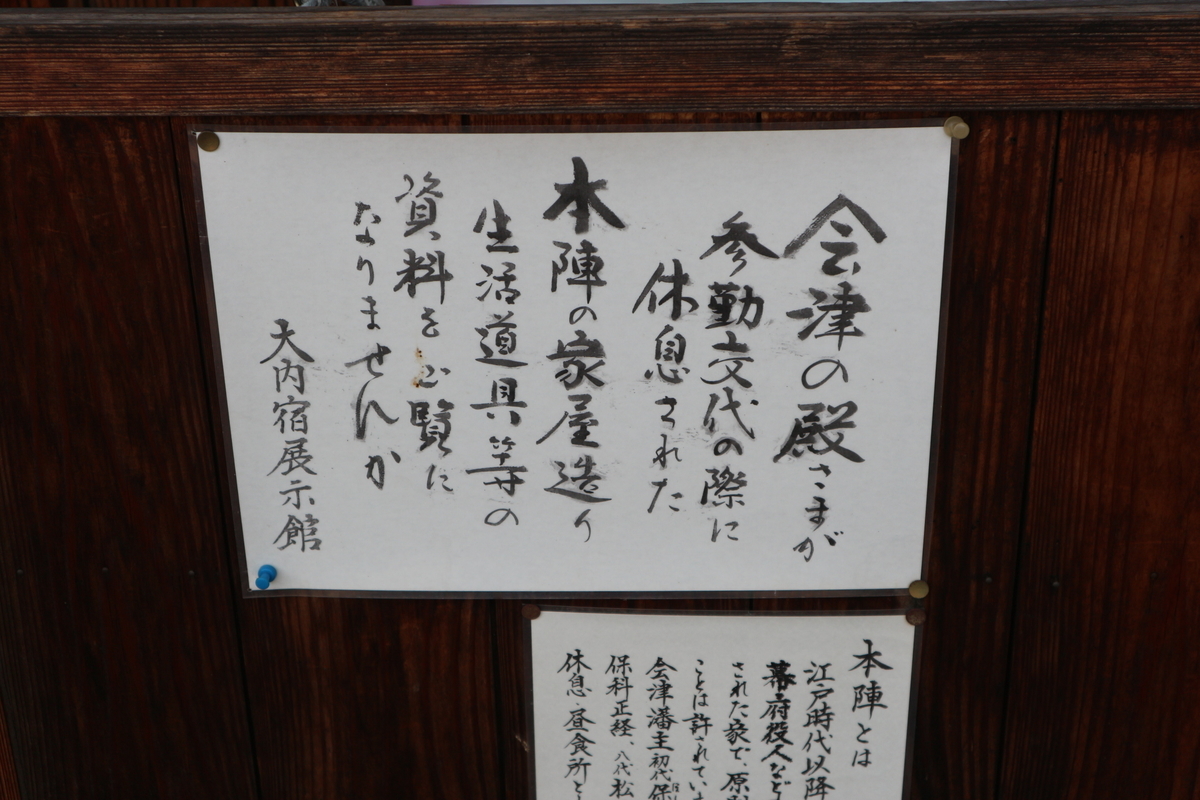 会津の殿さまが
参勤交代の際に
休息された
本陣の家屋造り
生活道具等の
資料をご覧に
なりませんか
大内宿展示館
本陣とは
江戸時代以降
幕府役人など
された家で、原則
ことは許されていま
会津藩主初代保
保科正経、八代松
休息・昼食所と